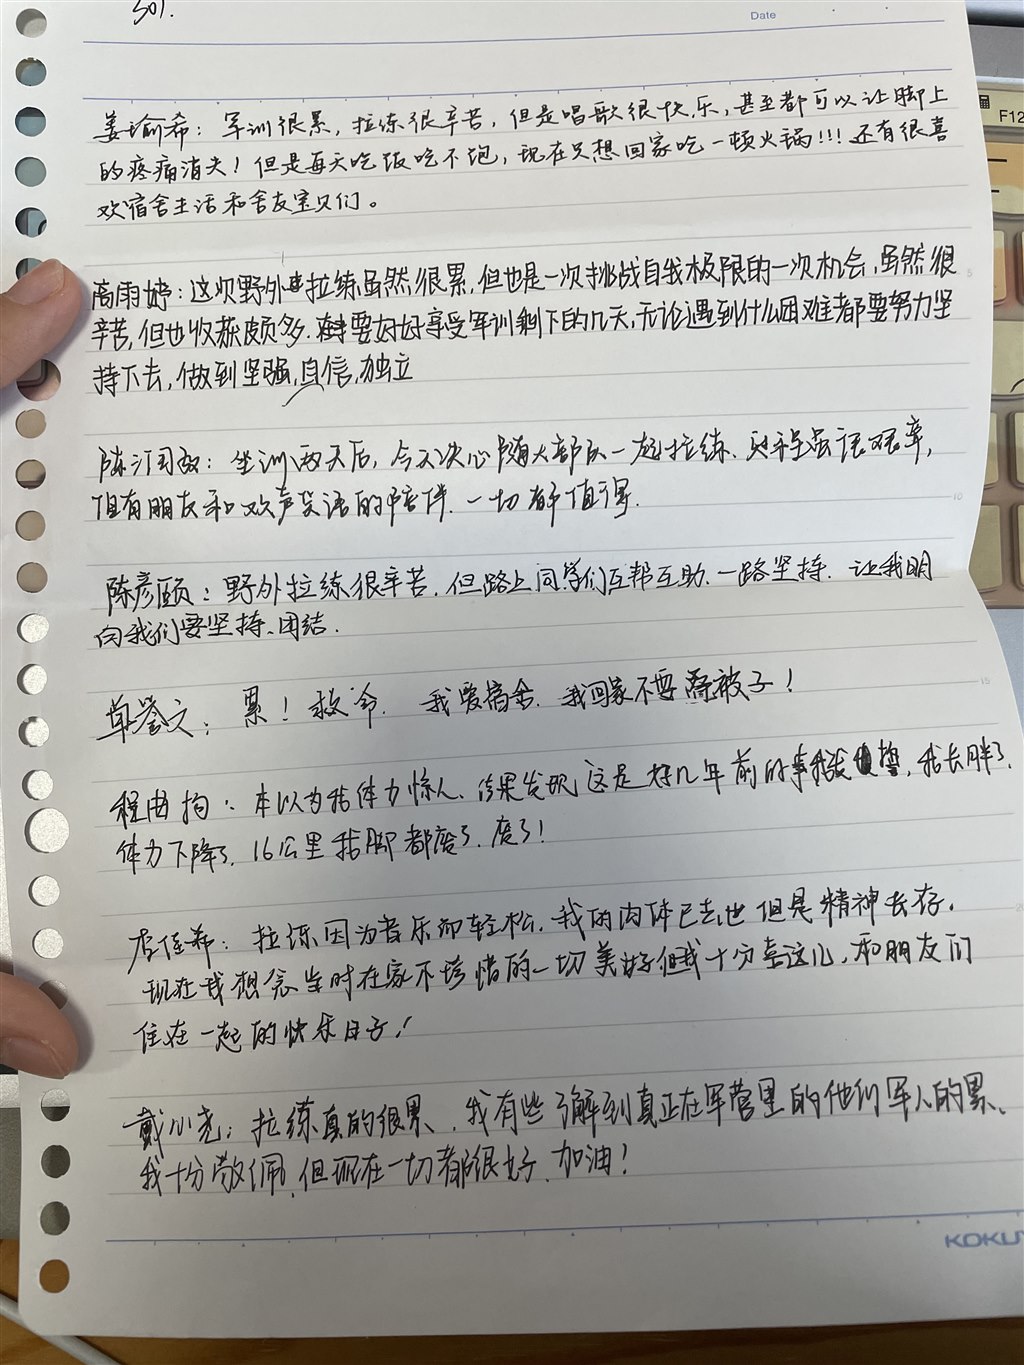 301.
Date
姜瑜希：军训很累，拉练很辛苦，但是唱歌很快乐，甚至都可以让脚上
的疼痛消失！但是每天吃饭吃不饱，现在只想回家吃一顿火锅!!!还有很喜
欢宿舍生活和舍友宝贝们。
高雨婷：这次野外拉练虽然很累，但也是一次挑战自我极限的一次机会，虽然很
辛苦，但也收获颇多.要好好享受军训剩下的几天，无论遇到什么困难都要努力坚
持下去，做到坚强，自信，独立
坐训两天后，今天决心随大部队一起拉练、虽很艰辛，
但有朋友和欢声笑语的陪伴.一切都值得.
陈彦颐：野外拉练很辛苦.但路上同学们互帮互助.一路坚持.让我明
白我们要坚持、团结.
单誉文：累！救命.我爱宿舍.我回家不要叠被子！
本以为我体力惊人、结果发现这是好几年前的事，我长胖了.
体力下降了.16公里我脚都磨了.废了！
拉练因为音乐而轻松.我的肉体已去世但是精神长存.
现在我想念当时在家不珍惜的一切美好但我十分喜这儿，和朋友们
住在一起的快乐日子！
戴小尧：拉练真的很累、我有些了解到真正在军营里的他们军人的累、
我十分敬佩、但现在一切都很好.加油！
10
15
KOKU
F12